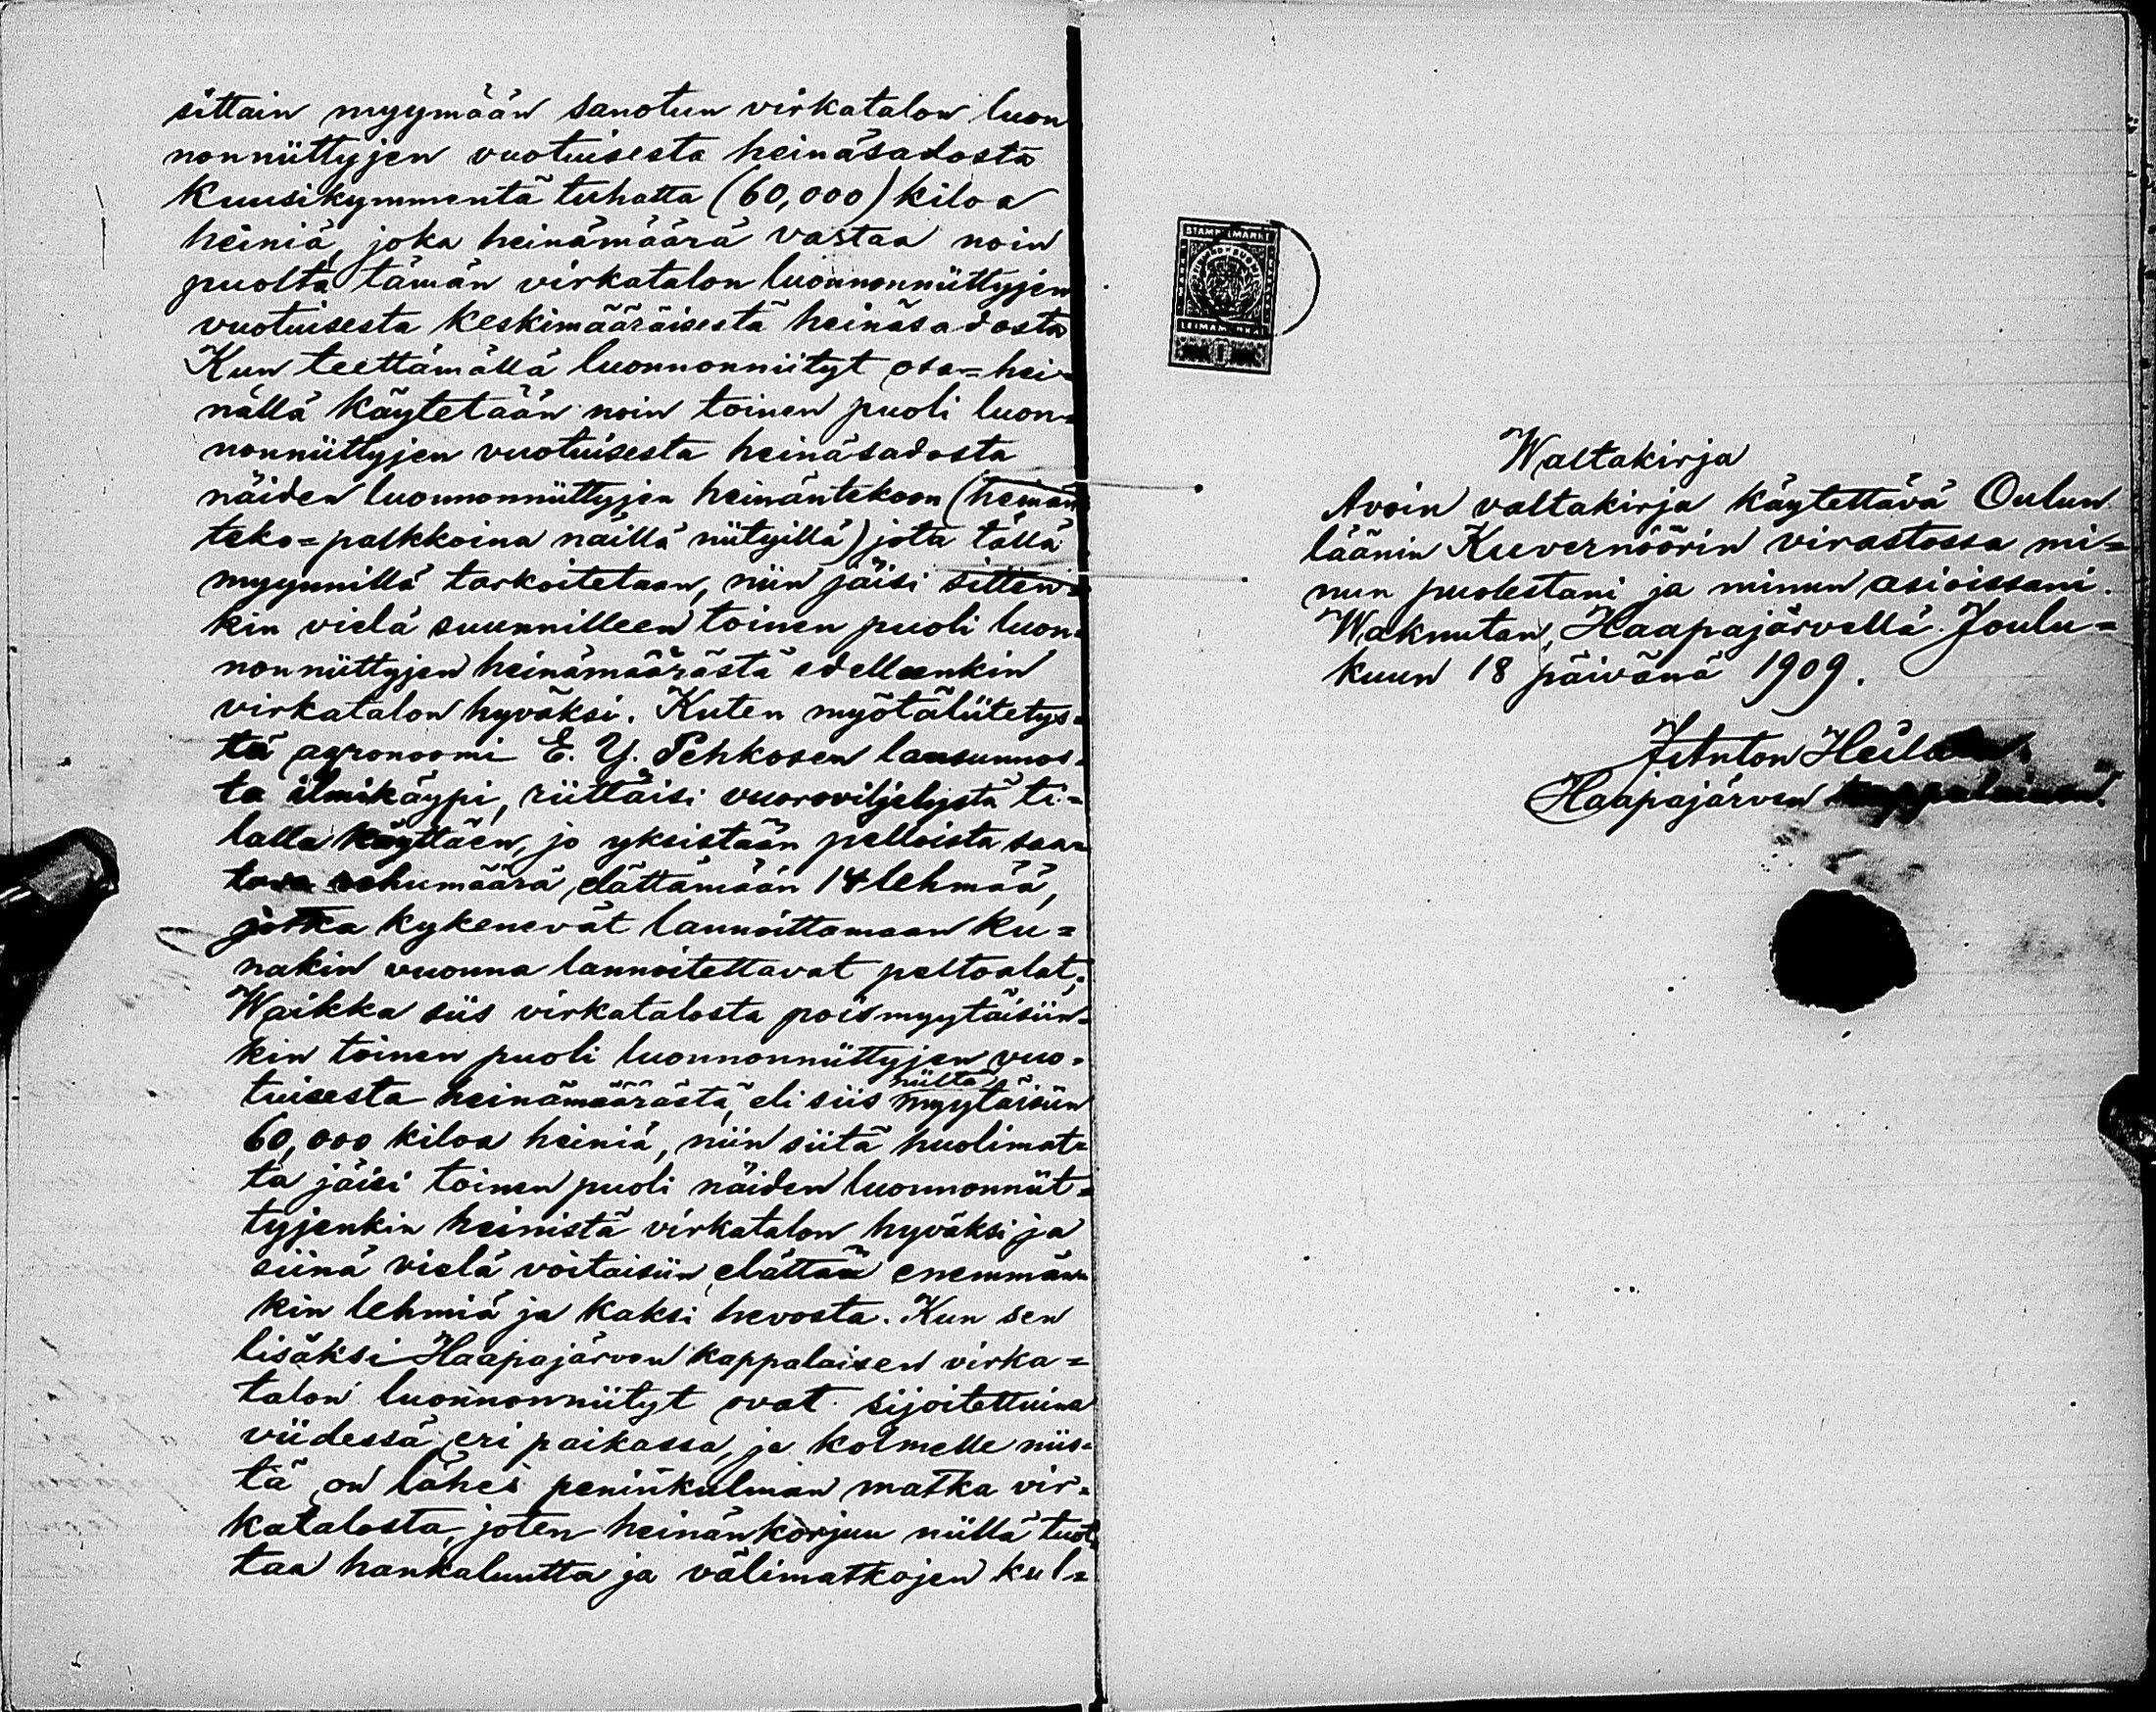 sittain myymään sanotun virkatalon luon
nonniittyjen vuotuisesta heinäsadosta
kuusikymmentä tuhatta (60,000) kiloa
heiniä, joka heinämäärä vastaa noin
puolta tämän virkatalon luonnonniittyjen
vuotuisesta keskimääräisestä heinäsadosta
Kun teettämällä luonnonniityt osa=hei-
nällä käytetään noin toinen puoli luon-
nonniittyjen vuotuisesta heinäsadosta
näiden luonnonniittyjen heinäntekoon (heinän
teko=palkkoina näillä niityillä) jota tällä
myynnillä tarkoitetaan, niin jäisi sitten=
kin vielä suunnilleen toinen puoli luon-
nonniittyjen heinämäärästä edelleenkin
virkatalon hyväksi. Kuten myötäliitetys-
tä agronoomi E. Y. Pehkosen lausunnos-
ta ilmikäypi, riittäisi vuoroviljelystä ti=
lalla käyttäen, jo yksistään pelloista saa=
tava rehumäärä elättämään 14 lehmää,
jotka kykenevät lannoittamaan ku=
nakin vuonna lannoitettavat peltoalat,
Waikka siis virkatalosta poismyytäisiin-
kin toinen puoli luonnonniittyjen vuo-
niiltä
tuisesta heinämäärästä, eli siis myytäisiin
60,000 kiloa heiniä, niin siitä huolimat=
ta jäisi toinen puoli näiden luonnonniit=
tyjenkin heinistä virkatalon hyväksi ja
siinä vielä voitaisiin elättää enemmän
kin lehmiä ja kaksi hevosta. Kun sen
lisäksi Haapajärven kappalaisen virka=
talon luonnonniityt ovat sijoitettuina
viidessä eri paikassa, ja kolmelle niis-
tä on lähes peninkulman matka vir-
katalosta, joten heinänkorjuu niillä tuot
taa hankaluutta ja välimatkojen kul=
STAMPELMARKE
FINLAND SUOMI
LEIMAMERKKI
1
Waltakirja
Avoin valtakirja käytettävä Oulun
läänin Kuvernöörin virastossa mi=
nun puolestani ja minun asioissani.
Wakuutan, Haapajärvellä Joulu=
kuun 18 päivänä 1909.
Anton
Haapajärven kappalainen.